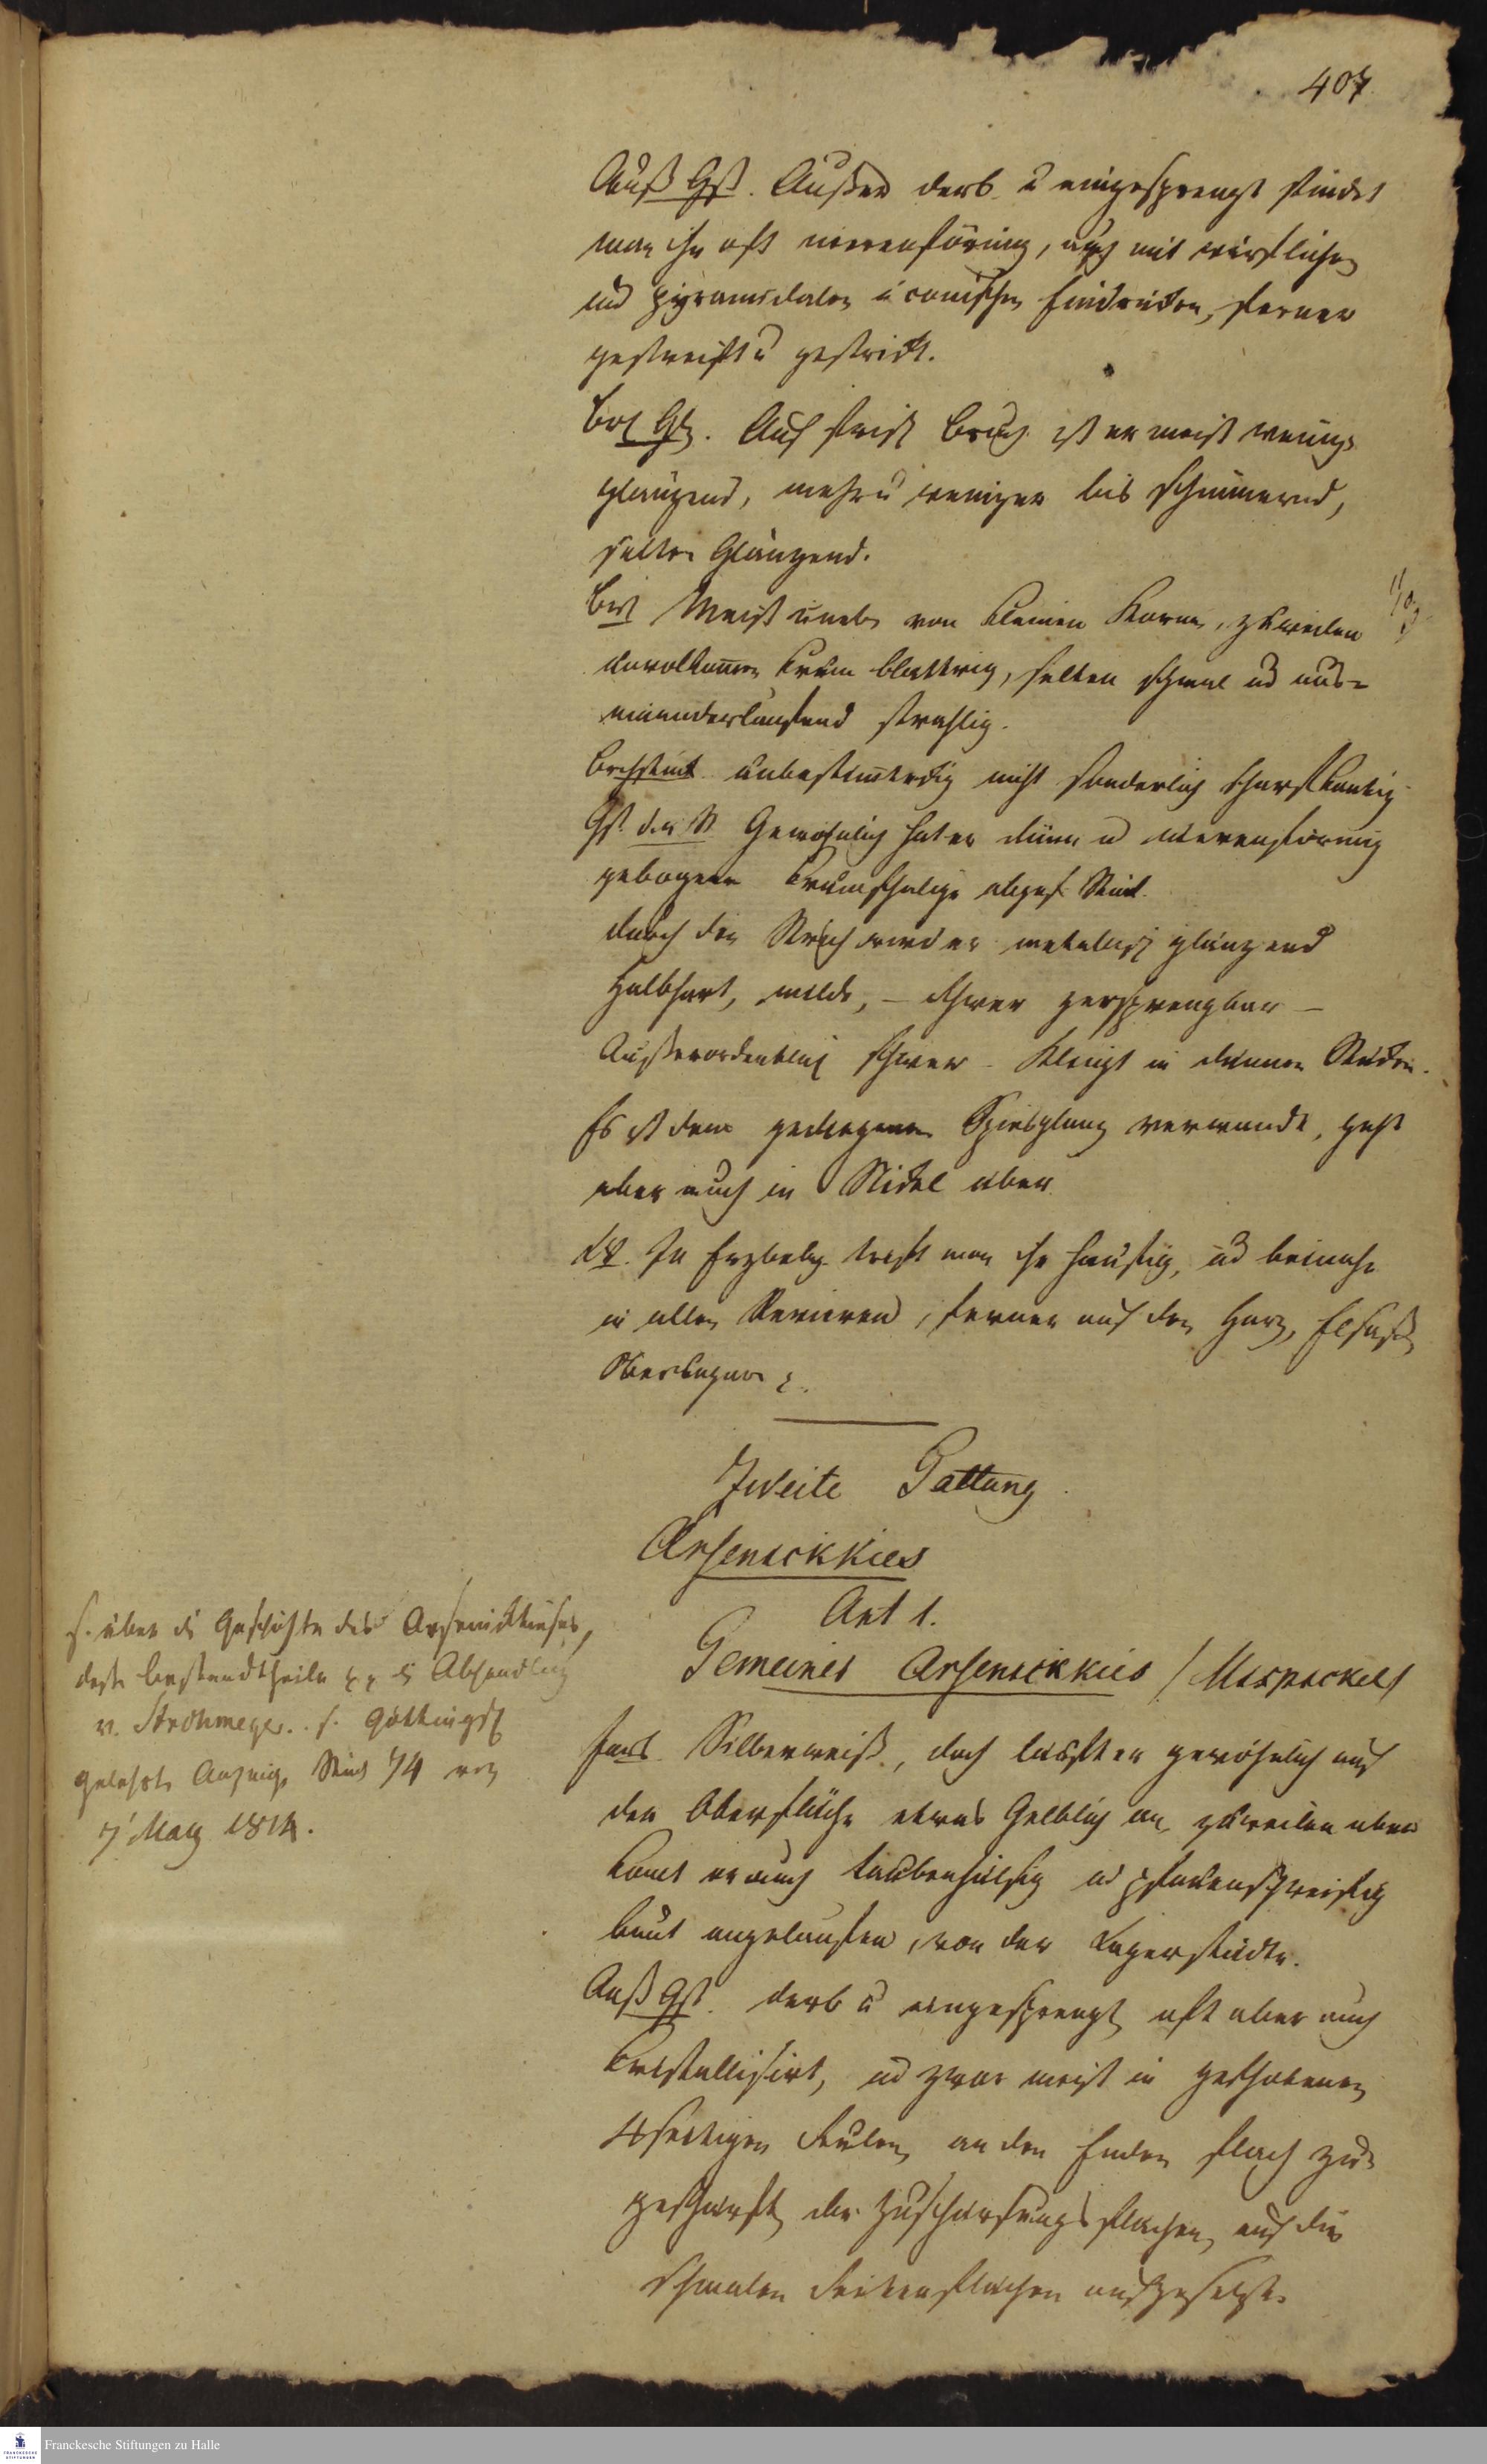 407.
Auß Gst. Außer derb u eingesprengt findet
man ihn oft nierenförmig, auch mit würflichen
und pyramidalen u conischen Eindrücken, ferner
gestreift u gestrickt.
Auf frisch Bruch ist er meist wenig
glänzend, mehr u weniger bis schimmernd,
selten Glänzend.
Br Meist uneben von kleinen Korne, zuweilen
unvollkommen krum blattrig, selten schmal und aus-
einanderlaufend strahlig.
Brchstück unbestimteckig nicht sonderlich scharfkantig
Gst. d. a. St. Gewöhnlich hat er dünn u nierenförmig
gebogene krumschalige abges Stück.
durch den Strich wird er metalisch glänzend
Halbhart, milde, – schwer zersprengbar –
Außerordentlich schwer – Klingt in dünnen Stücken.
Es ist dem gediegenen Spiesglanz verwandt, geht
aber auch in Nickel über.
In Erzbebg. trift man ihn häufig, und beinahe
in allen Revieren, ferner auf den Harz, Elsaß,
Zweite Gattung.
Arsenickkies
Art 1.
Gemeiner Arsenickkies / Mispickel /
Farb. Silberweiß, doch läuft er gewöhnlich auf
der Oberfläche etwas Gelblich an, zuweilen aber
komt er auch taubenhälsig und pfauenschweifig
bunt angelaufen, von der Lagerstädte.
Auß Gst. derb u eingesprengt oft aber auch
kristallisirt, und zwar meist in geschobenen
4seitigen Säulen, an den Enden flach zu-
geschärft, die Zuschärfungsflächen, auf die
schmalen Seitenflächen aufgesetzt.
s. über die Geschichte des Arsenickkieses,
dess. Bestandtheile Abhandlung
v. Strohmeyer. s. Göttingsch
gelehrte Anzeige Stück 74 von
7 May 1814.
Franckesche Stiftungen zu Halle